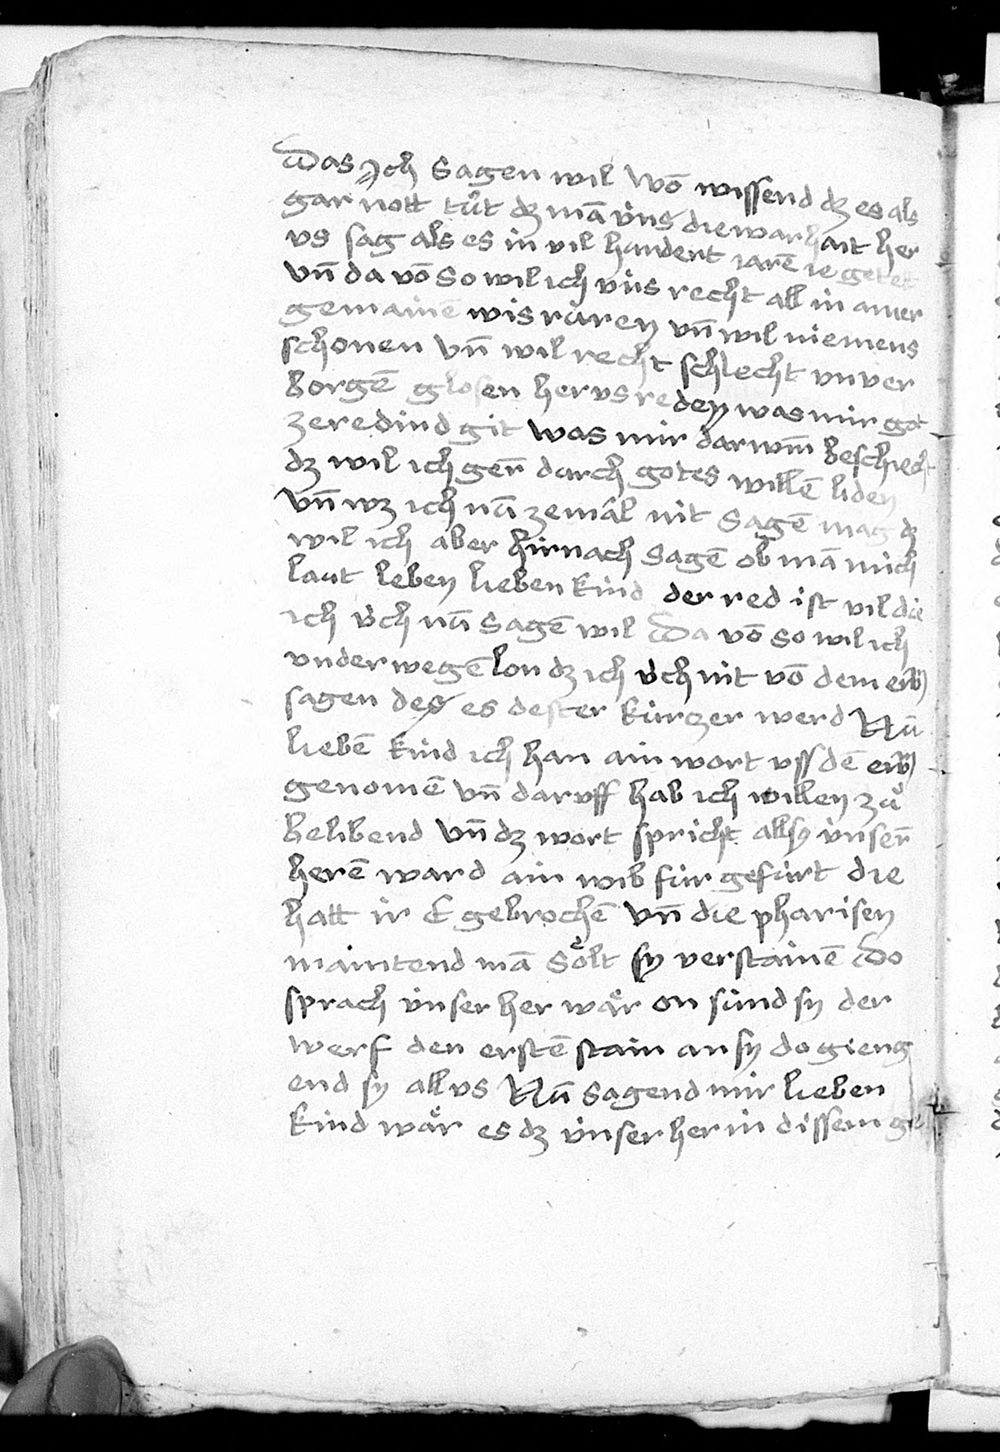 Was ich Sagen wil Wō wissend dz es als
gar nott tůt dz mā v́ns die warhait her
vs sag als es in vil hundert iarē ie getet
Vn̄ da vō So wil ich v́ns recht all in ainer
gemainē wis růren vn̄ wil niemens
schonen Vn̄ wil recht schlecht vnver
borgē glosen her vs reden was mir got
ze redind git Was mir darum̄ beschiech
dz wil ich gern̄ durch gotes willē liden
Vn̄ wz ich nū zemâl nit Sagē mag dz
wil ich aber hirnach Sagē ob mā mich
laut leben lieben kind der red ist vil die
ich v́ch nū Sagē wil Da vō so wil ich
vnderwegē lon dz ich v́ch nit vō dem ew̄
sagen des es dester kúrzer werd Nū
liebē kind ich han ain wort vss dē ew̄
genomē Vn̄ darvff hab ich willen zů
belibend Vn̄ dz wort spricht allsy v́nsern̄
herē ward ain wib fúr gefúrt die
hatt ir E gebrochē Vn̄ die pharisen
maintend mā Sôlt sy verstainē Do
sprach v́nser her wǎr on súnd sy der
werf den erstē stain an sy do gieng
end sy all vs Nū Sagend mir lieben
kind wǎr es dz v́nser her in dissem